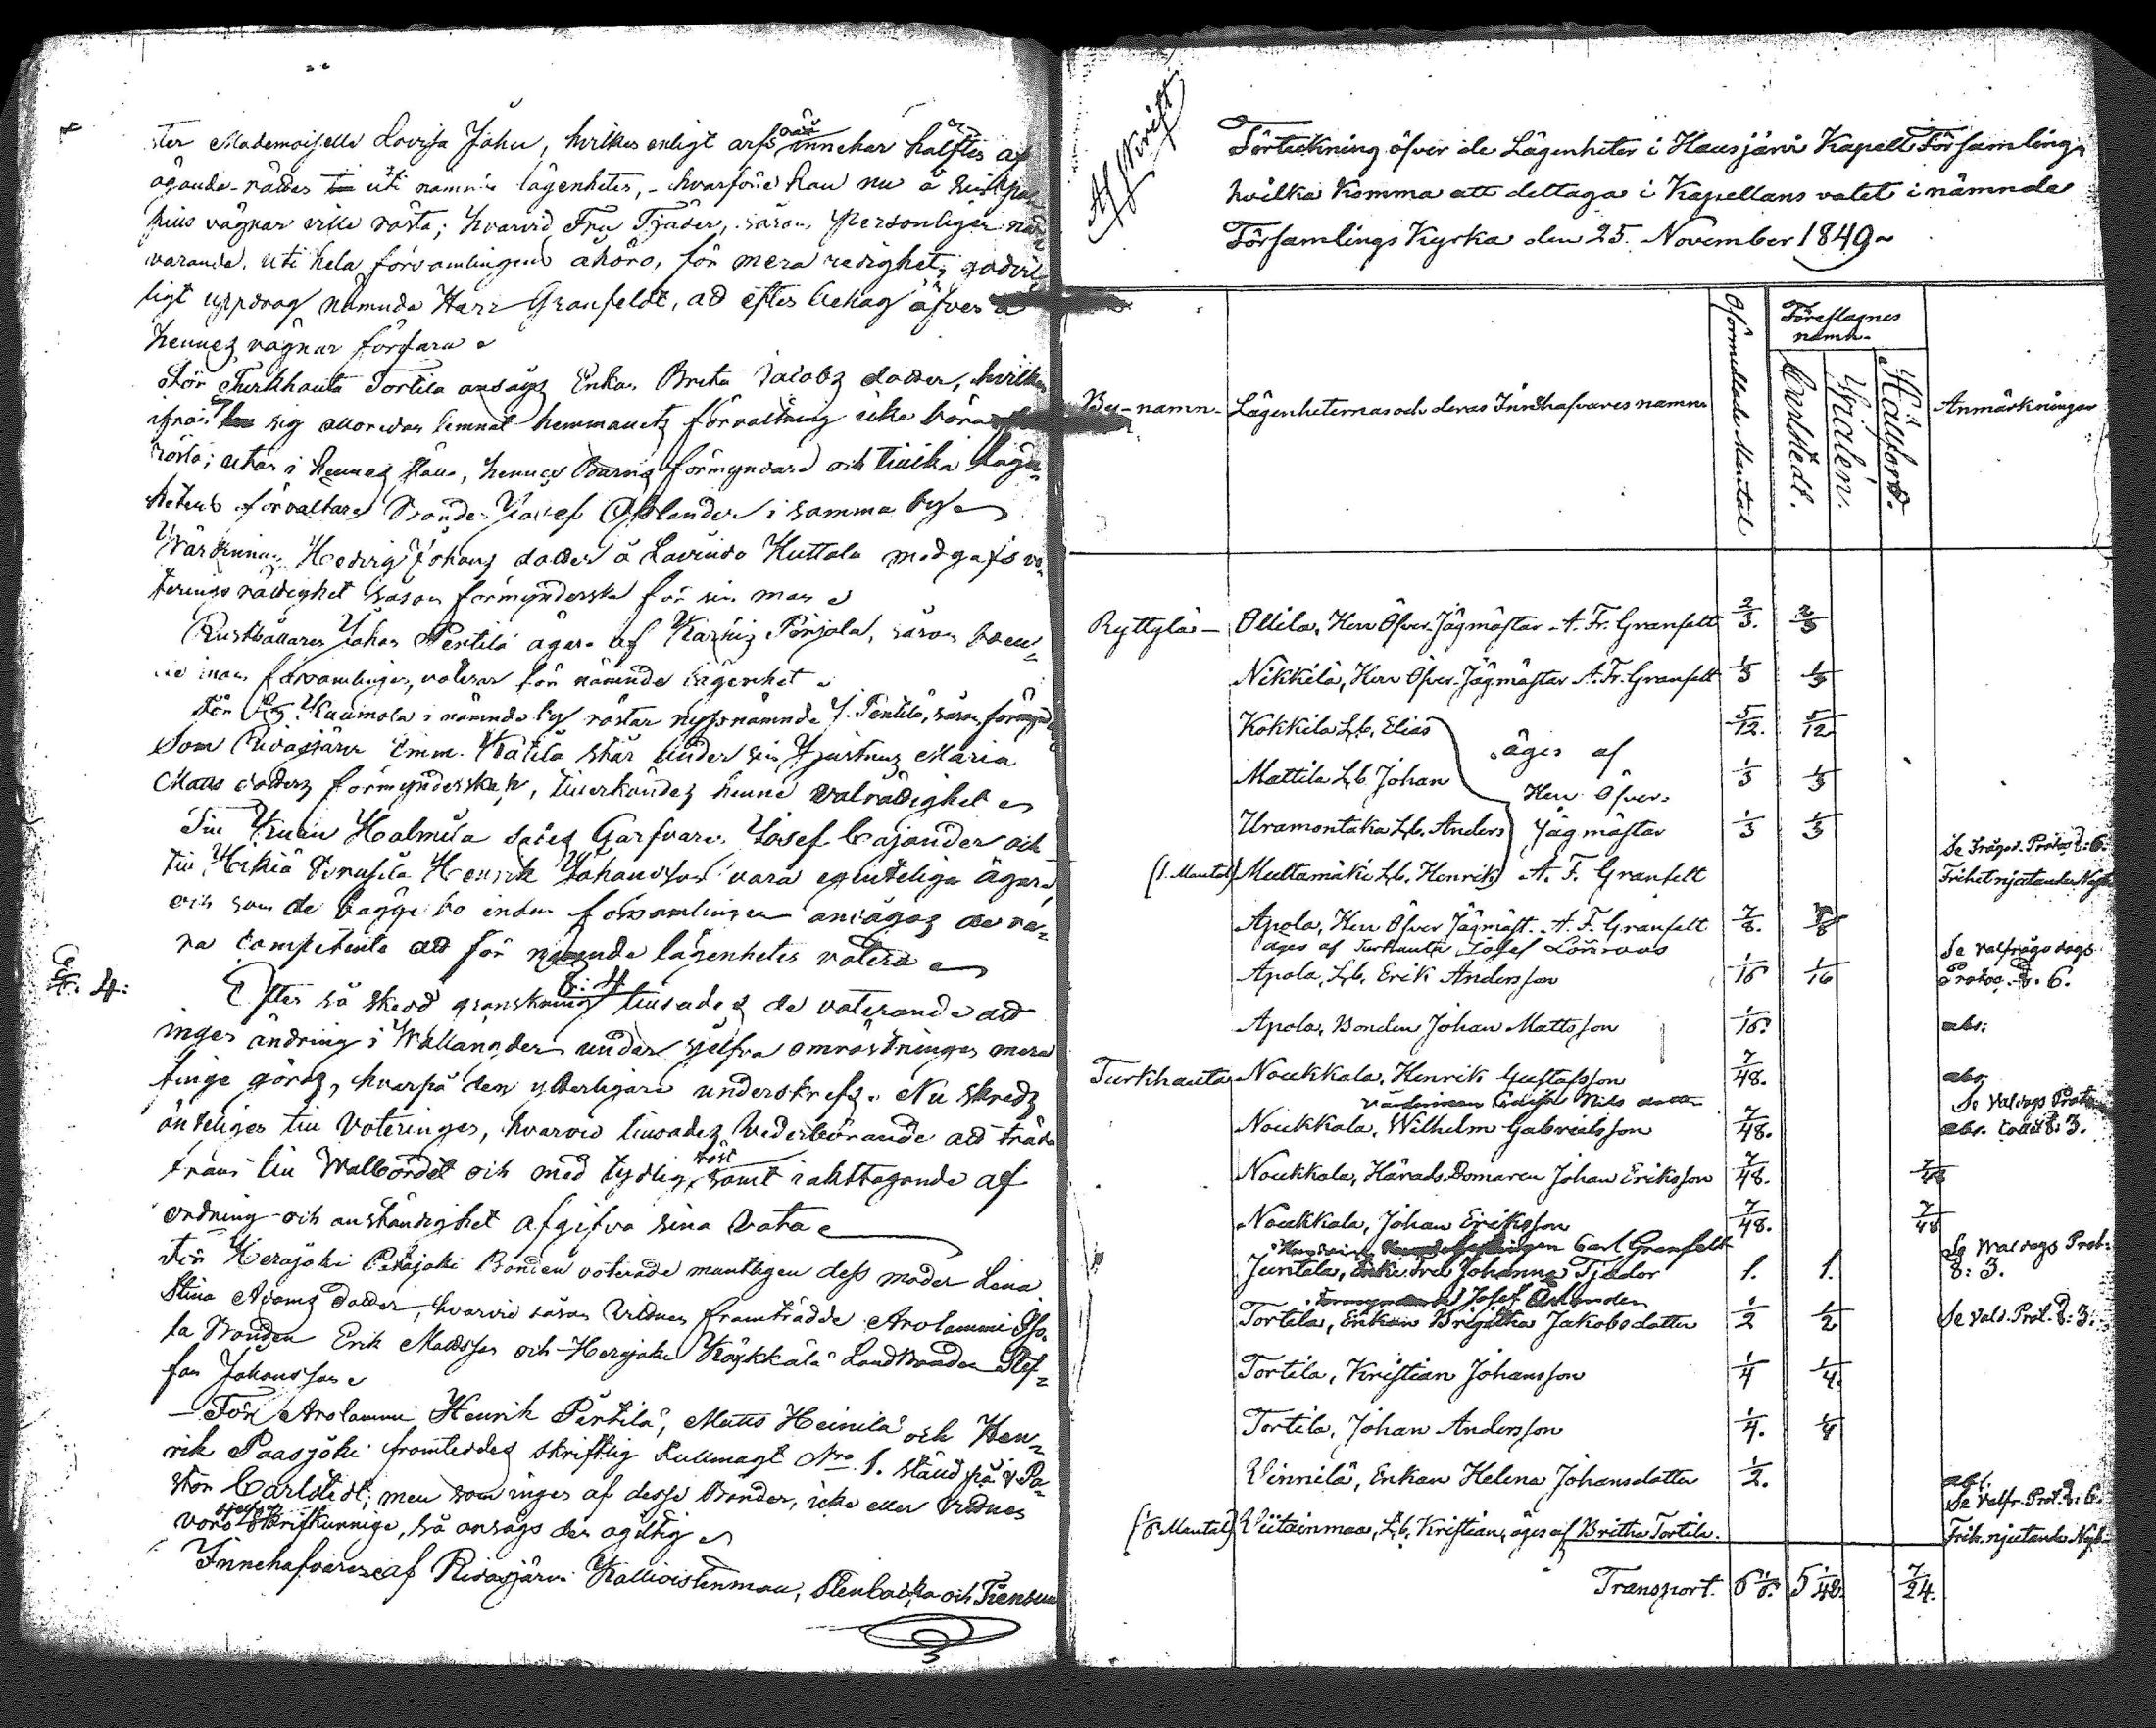 ster Mademoiselle Lovisa Jahn, hvilken enligt arfs rätt innehar hälften af
ägande-rätten uti nämnde lägenheten, - hvarföre han nu å
hins vägnar ville rösta; hvarvid Fru Tjäder, såsom Personligen när-
varande, uti hela församlingens åhöro, för mera redighet, godvil-
ligt uppdrog nämnde Herr Granfeldt, att efter behag äfven å
hennes vägnar förfara
För Turkhauta Tortila ansågs Enkan Brita Jacobs dotter, hvilken
ifrån sig allaredan lemnat hemmanets förvaltning icke böra
rösta; utan i hennes ställe, hennes Barns förmyndare och tillika lägen-
hetens förvaltare Bonden Josef i samma by
Värdinnan Hedvig Johans dotter å Lavinto Huttala medgafs vo-
terings rättighet såsom förmynderska för sin man
Rusthållaren Johan Pertilä ägare af Karhis Pönjola, såsom boen-
de inom församlingen, voterar för nämnde lägenhet
För Kaumola i nämnde by röstar nyssnämnde J. Pentilä, såsom förmynd
Som Ridasjärvi Emm. Kätilä står under sin hustrus Maria
Matts dotters förmynderskap, tillerkändes henne valrättighet
Till Halmila sades Garfvaren Josef Cajander och
till Hikiä Henrik Johansson vara egenteliga ägare,
och som de bägge bo inom församlingen ansågos de va-
ra competenta att för nämnde lägenheter votera
§: 4:
Efter så skedd granskning tillsades de voterande att
ingen ändring i Wallängden under sjelfva omröstningen mera
finge göras, hvarpå den ytterligare underskrefs. Nu skreds
änteligen till Voteringen, hvarvid tillsades Vederbörande att träda
fram till Walbordet och med tydlig röst samt iakttagande af
ordning och anständighet afgifva sina Vota
För Herajoki Petäjoki Bonden voterade manteligen dess moder Lena
Stina Adams dotter, hvarvid såsom Vittnen framträdde Arolammi
la Bonden Erik Mattsson och Herajoki Köykkälä Landbonden Stef-
fan Johansson
- För Arolammi Henrik Pertilä, Matts Heinilä och Hen-
rik Paasjoki framteddes skriftlig Fullmagt Nro 1. ställd på Pa-
stor Carlstedt; men som ingen af desse Bönder, icke eller Vittnen
voro sjelfva skrifkunnige, så ansågs den ogiltig
Innehafvarene af Ridasjärvi Kallioistenmaa, Stenbacka och Tiensuu
Afskrift
Förteckning öfver de Lägenheter i Hausjärvi Kapell Församling
hvilka komma att deltaga i Kapellans valet i nämnda
Församlings Kyrka den 25. November 1849
By-namn-
Lägenheternas och deras Innehafvares namn
Oförmedlade Mantal
Föreslagnes namn-
Carlstedt.
Widén.
Hällfors.
Anmärkningar
Ryttylä - Ollila, Herr Öfver-Jägmästar A. Fr. Granfelt 2/3. 2/3
Nikkilä, Herr Öfver-Jägmästar A. Fr. Granfelt 1/3 1/3
Kokkila Lb. Elias 5/12. 5/12
Mattila Lb. Johan 1/3 1/3
Uramontaka Lb. Anders 1/3 1/3
äges af Herr Öfver-Jägmästar A. F. Granfelt
(1. Mantal) Multamäki Lb. Henrik Se Frågod. Protoc. §: 6. Frihet njutande Nyb.
Apola, Herr Öfver Jägmäst. A. F. Granfelt 7/8. 7/8
äges af Turkhauta Josef Lönroos
Apola, Lb. Erik Andersson 1/16 1/16 Se valfrågo dags Protoc. §. 6.
Apola, Bonden Johan Mattsson 1/16. abs:
Turkhauta Noukkala, Henrik Gustafsson 7/48. abs
Värdinnan Nils dotter
Noukkala, Wilhelm Gabrielsson 7/48. Se Valdags Protoc. abs. §: 3.
Noukkala, Härads-Domaren Johan Eriksson 7/48. 7/48
Noukkala, Johan Eriksson 7/48. 7/48
Carl Granfelt
Juntela, Enke Fru Johanna Tjäder 1. 1. Se Waldags Prot: §: 3.
Josef
Tortila, Enkan Brigitha Jakobsdotter 1/2 1/2 Se Vald. Prot. §: 3.
Tortila, Kristian Johansson 1/4 1/4.
Tortila, Johan Andersson 1/4. 1/4
Vinnilä, Enkan Helena Johansdotter 1/2. abs.
(1/6 Mantal) Viitainmaa, Lb. Kristian, äges af Britha Tortila. Se Valfr. Prot. §: 6. Frih. njutande Nyb.
Transport. 6 1/6. 5 1/48. 7/24.